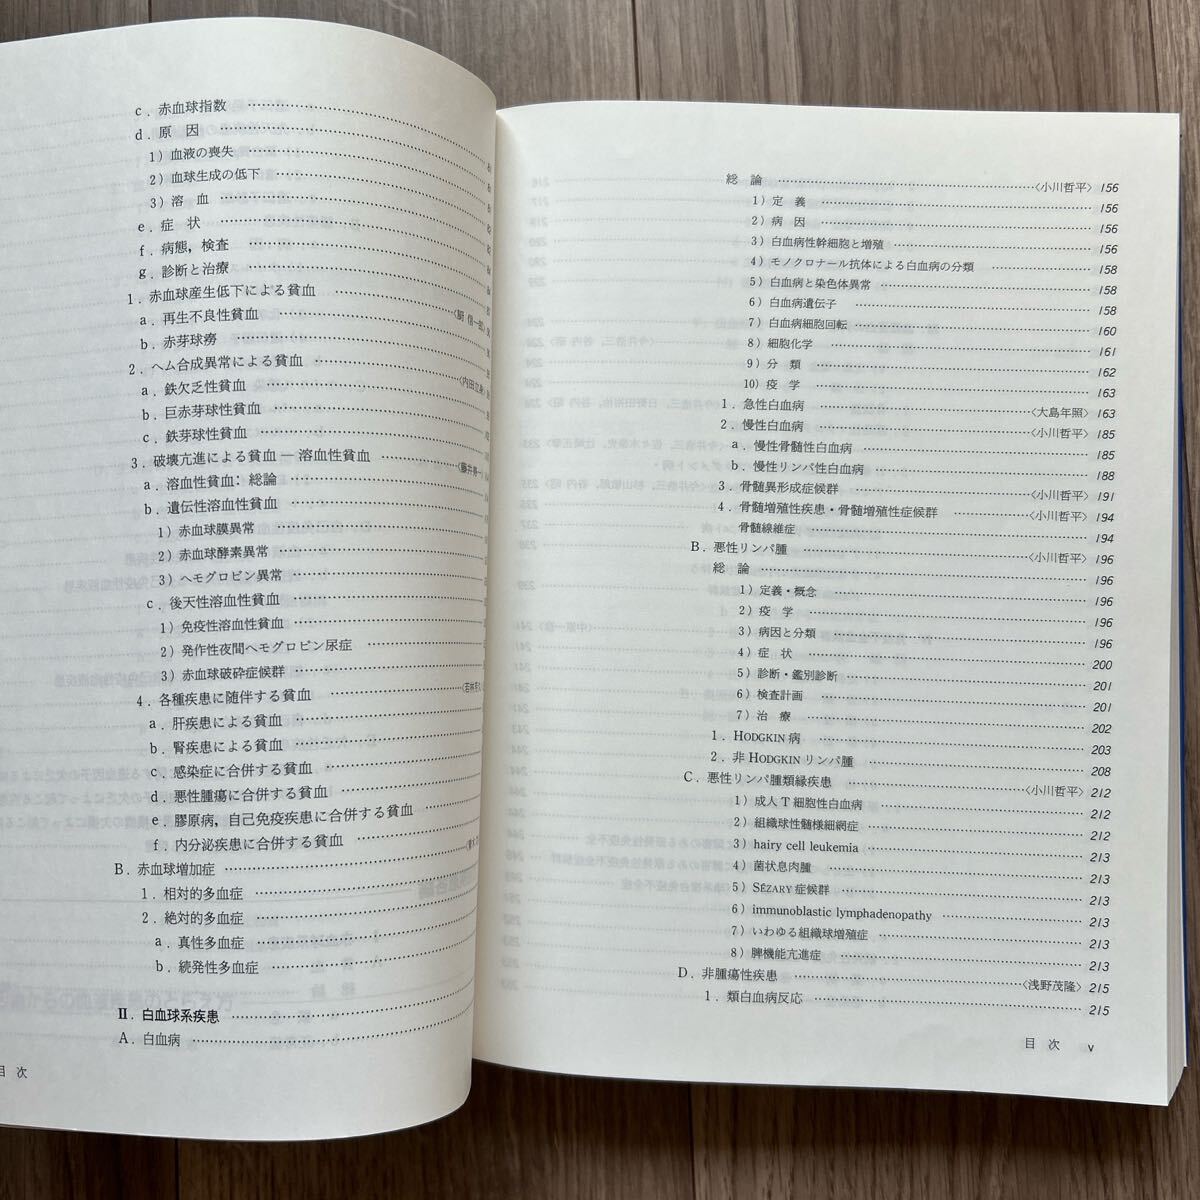 c．赤血球指数
d．原　因
1）血液の喪失
2）血球生成の低下
3）溶　血
e．症　状
f．病態，検査
g．診断と治療
1．赤血球産生低下による貧血
a．再生不良性貧血
b．赤芽球癆
2．ヘム合成異常による貧血
a．鉄欠乏性貧血 〈内田立身〉
b．巨赤芽球性貧血
c．鉄芽球性貧血
3．破壊亢進による貧血—溶血性貧血
a．溶血性貧血：総論
b．遺伝性溶血性貧血
1）赤血球膜異常
2）赤血球酵素異常
3）ヘモグロビン異常
c．後天性溶血性貧血
1）免疫性溶血性貧血
2）発作性夜間ヘモグロビン尿症
3）赤血球破砕症候群
4．各種疾患に随伴する貧血
a．肝疾患による貧血
b．腎疾患による貧血
c．感染症に合併する貧血
d．悪性腫瘍に合併する貧血
e．膠原病，自己免疫疾患に合併する貧血
f．内分泌疾患に合併する貧血
B．赤血球増加症
1．相対的多血症
2．絶対的多血症
a．真性多血症
b．続発性多血症
Ⅱ．白血球系疾患
A．白血病
目　次
総　論 〈小川哲平〉 156
1）定　義 156
2）病　因 156
3）白血病性幹細胞と増殖 156
4）モノクロナール抗体による白血病の分類 158
5）白血病と染色体異常 158
6）白血病遺伝子 158
7）白血病細胞回転 160
8）細胞化学 161
9）分　類 162
10）疫　学 163
1．急性白血病 〈大島年照〉 163
2．慢性白血病 〈小川哲平〉 185
a．慢性骨髄性白血病 185
b．慢性リンパ性白血病 188
3．骨髄異形成症候群 〈小川哲平〉 191
4．骨髄増殖性疾患・骨髄増殖性症候群 〈小川哲平〉 194
骨髄線維症 194
B．悪性リンパ腫 〈小川哲平〉 196
総　論 196
1）定義・概念 196
2）疫　学 196
3）病因と分類 196
4）症　状 200
5）診断・鑑別診断 201
6）検査計画 201
7）治　療 202
1．HODGKIN 病 203
2．非 HODGKIN リンパ腫 208
C．悪性リンパ腫類縁疾患 〈小川哲平〉 212
1）成人 T 細胞性白血病 212
2）組織球性髄様細網症 212
3）hairy cell leukemia 213
4）菌状息肉腫 213
5）SÉZARY 症候群 213
6）immunoblastic lymphadenopathy 213
7）いわゆる組織球増殖症 213
8）脾機能亢進症 213
D．非腫瘍性疾患 〈浅野茂隆〉 215
1．類白血病反応 215
目　次　v